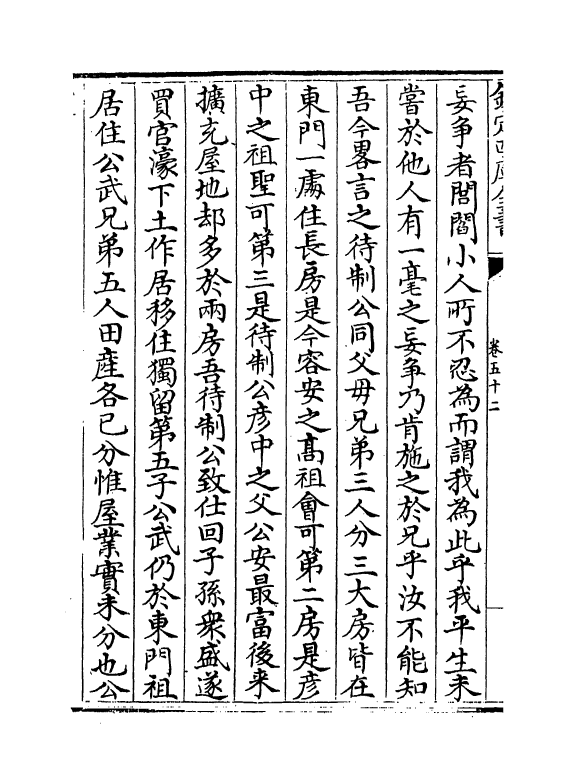 欽定四庫全書
卷五十二
妄争者閭閻小人所不忍為而謂我為此乎我平生未
嘗於他人有一毫之妄争乃肯施之於兄乎汝不能知
吾今畧言之待制公同父母兄弟三人分三大房皆在
東門一處住長房是今容安之髙祖㑹可第二房是彦
中之祖聖可第三是待制公彦中之父公安最富後来
擴充屋地却多於兩房吾待制公致仕回子孫衆盛遂
買官濠下土作居移住獨留第五子公武仍於東門祖
居住公武兄弟五人田産各已分惟屋業實未分也公